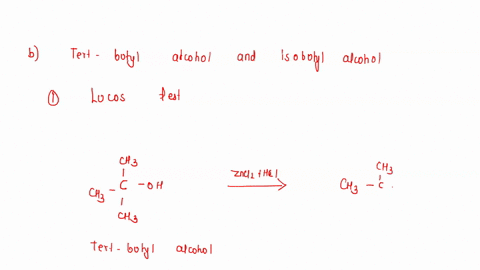 b) Tert-butyl alcohol and isobutyl alcohol
① Lucas test
CH3 CH3
CH3 - C - OH ZnCl2 + HCl CH3 - C -
CH3
Tert-butyl alcohol